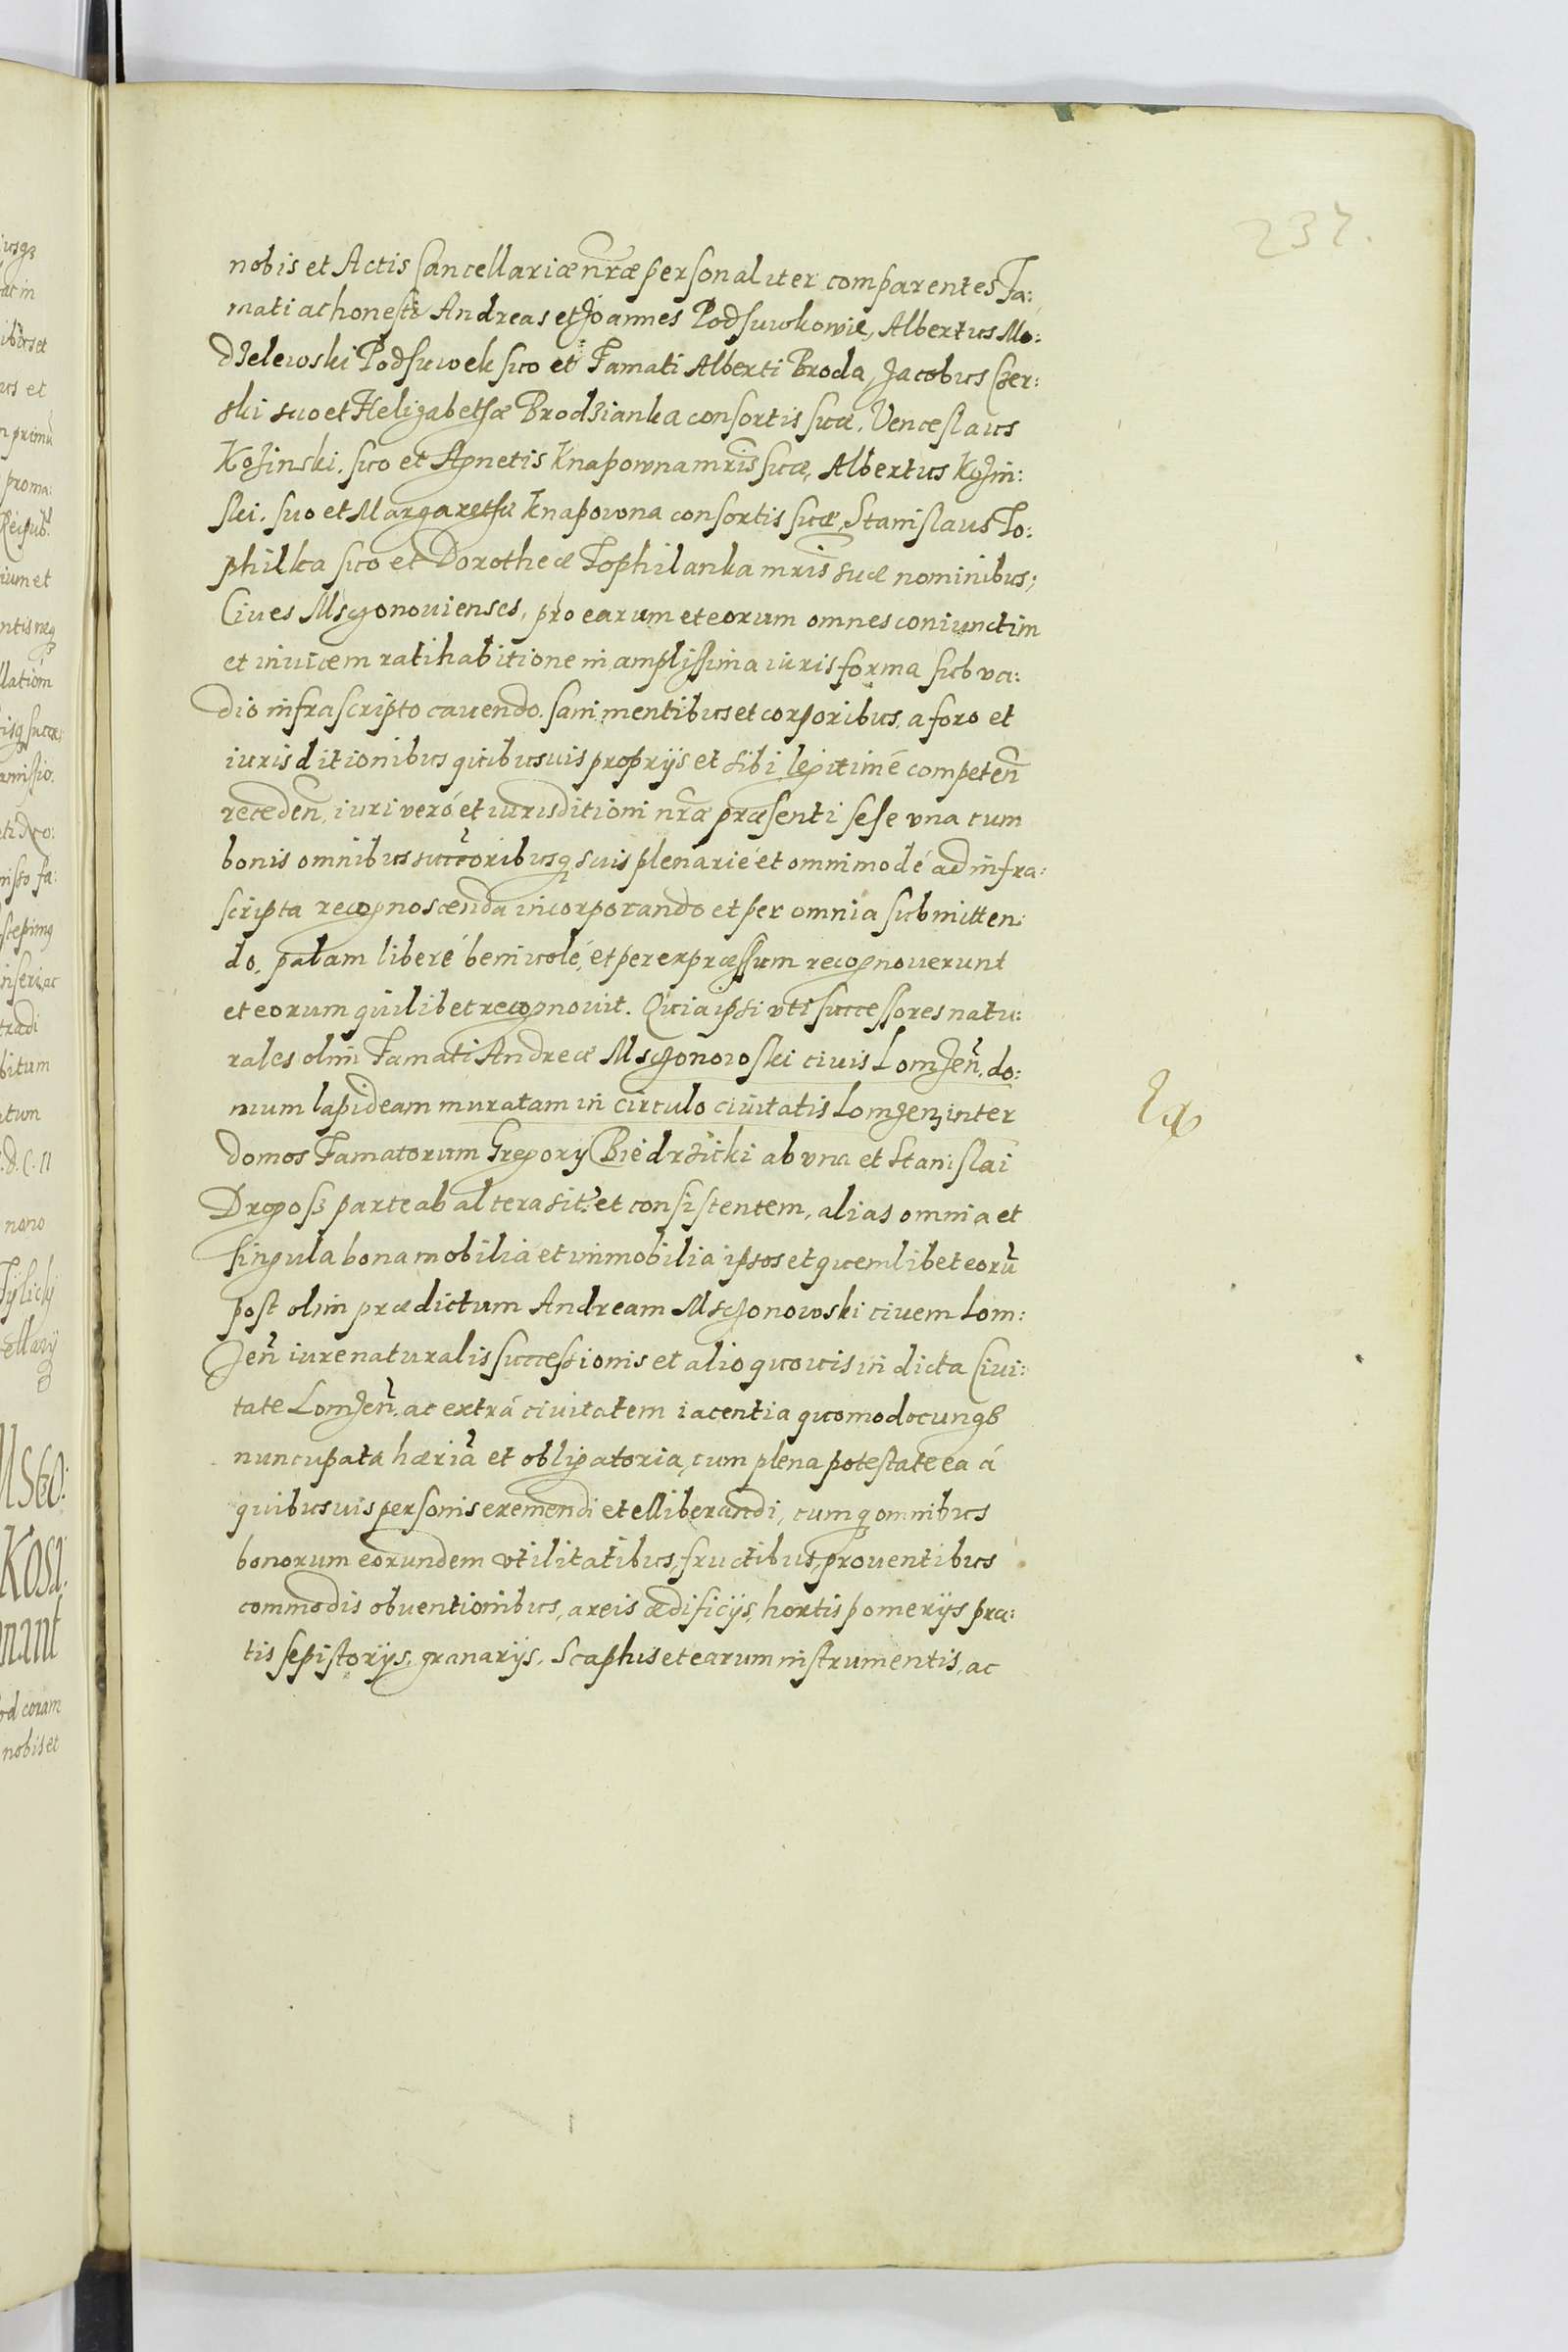 237.
nobis et Actis Cancellariæ nr̃æ personaliter comparentes Fa:
mati ac honesti Andreas et Joannes Podsuwkowie, Albertus Mo:
dzelewski Podsuwek suo et Famati Alberti Broda, Jacobus Czer:
ski suo et Helizabethæ Brodzianka consortis suæ, Venceslaus
Kozinski, suo et Agnetis Knapowna mr̃is suæ, Albertus Kozin:
ski, suo et Margarethæ Knapowna consortis suæ, Stanislaus To:
philka suo et Dorotheæ Tophilanka mr̃is suæ nominibus,
Ciues Msczonouienses, pro earum et eorum omnes coniunctim
et inuicem ratihabitione in amplissima iuris forma sub va:
dio infrascripto cauendo. Sani mentibus et corporibus, a foro et
iurisditionibus quibusuis proprijs et sibi legitimè competeñ
recedeñ, iuri veró et iurisditioni nr̃æ præsenti sese vna cum
bonis omnibus succ̃oribusq suis plenarié et omnimodé ad infra:
scripta recognoscenda incorporando et per omnia submitten:
do, palam liberé beniuolé, et per expræssum recognouerunt
et eorum quilibet recognouit. Quia ipsi vti successores natu:
rales olim Famati Andreæ Msczonowski ciuis Lomzeñ. do:
mum lapideam muratam in circulo ciuitatis Lomzen, inter
domos Famatorum Gregory Biedrzicki ab vna et Stanislai
Drogosz parte ab altera sit. et consistentem, alias omnia et
singula bona mobilia et immobilia ipsos et quemlibet eorũ
post olim prædictum Andream Msczonowski ciuem Lom:
zeñ iure naturalis successionis et alio quouis in dicta Ciui:
tate Lomzeñ. ac extrá ciuitatem iacentia quomodocunq3
nuncupata hæriã et obligatoria, cum plena potestate ea á
quibusuis personis exemendi et elliberandi, cumq omnibus
bonorum eorundem vtilitatibus, fructibus, prouentibus
commodis obuentionibus, areis ædificijs, hortis pomerijs pra:
tis sepistorijs, granarijs, Scaphis et earum instrumentis, ac